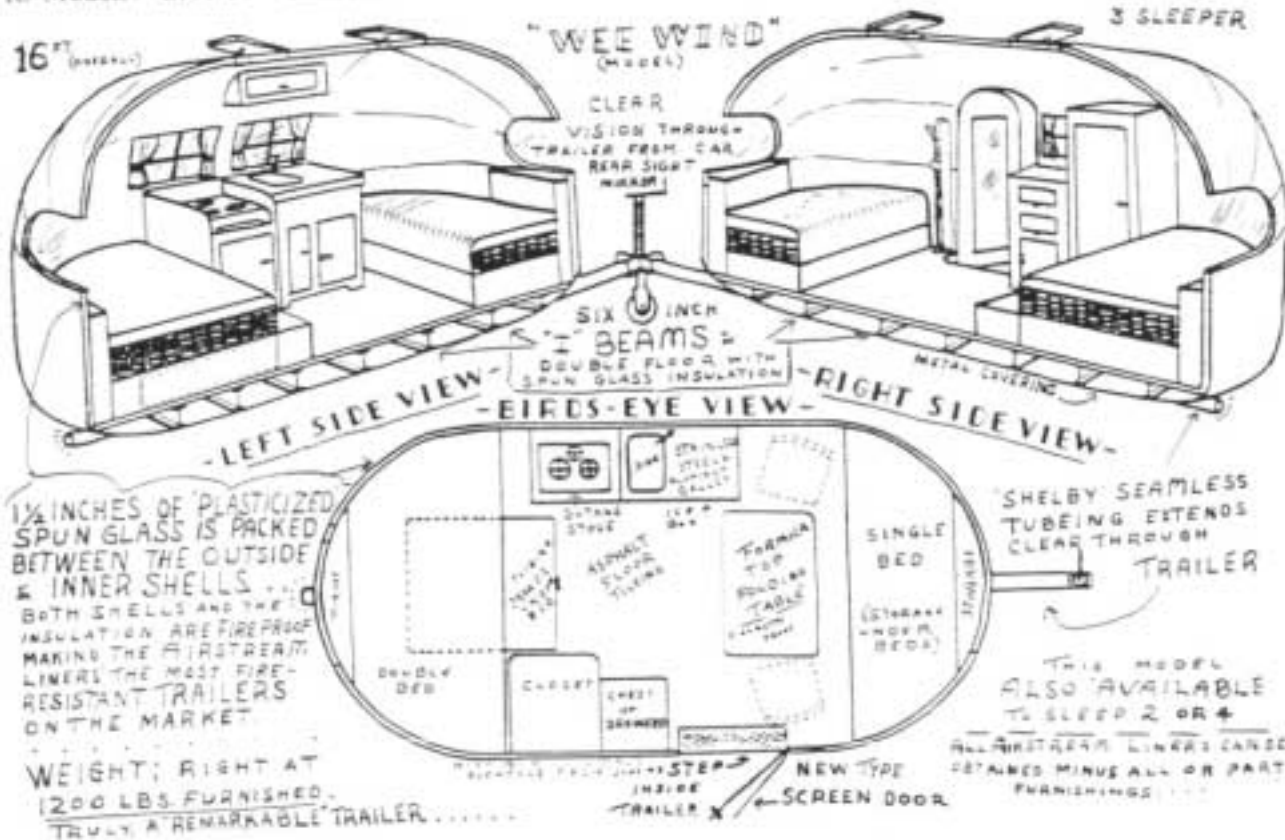 16 FT
"WEE WIND"
(MODEL)
3 SLEEPER
CLEAR
VISION THROUGH
TRAILER FROM CAR
REAR SIGHT
MIRROR!
SIX INCH
"I" BEAMS
DOUBLE FLOOR WITH
SPUN GLASS INSULATION
METAL COVERING
-LEFT SIDE VIEW-
-BIRDS-EYE VIEW-
-RIGHT SIDE VIEW-
1½ INCHES OF PLASTICIZED
SPUN GLASS IS PACKED
BETWEEN THE OUTSIDE
& INNER SHELLS...
BOTH SHELLS AND THE
INSULATION ARE FIREPROOF
MAKING THE AIRSTREAM
LINERS THE MOST FIRE-
RESISTANT TRAILERS
ON THE MARKET.
WEIGHT; RIGHT AT
1200 LBS. FURNISHED.
TRULY A REMARKABLE TRAILER......
SINK
STAINLESS
STEEL
GALLEY
BUTANE
STOVE
ICE
BOX
ASPHALT
FLOOR
TILING
FORMICA
TOP
FOLDING
TABLE
SINGLE
BED
(STORAGE
UNDER
BEDS)
DOUBLE
BED
CLOSET
CHEST
OF
DRAWERS
STEP
INSIDE
TRAILER
NEW TYPE
SCREEN DOOR
SHELBY SEAMLESS
TUBEING EXTENDS
CLEAR THROUGH
TRAILER
THIS MODEL
ALSO AVAILABLE
TO SLEEP 2 OR 4
ALL AIRSTREAM LINERS CAN BE
OBTAINED MINUS ALL OR PART
FURNISHINGS....